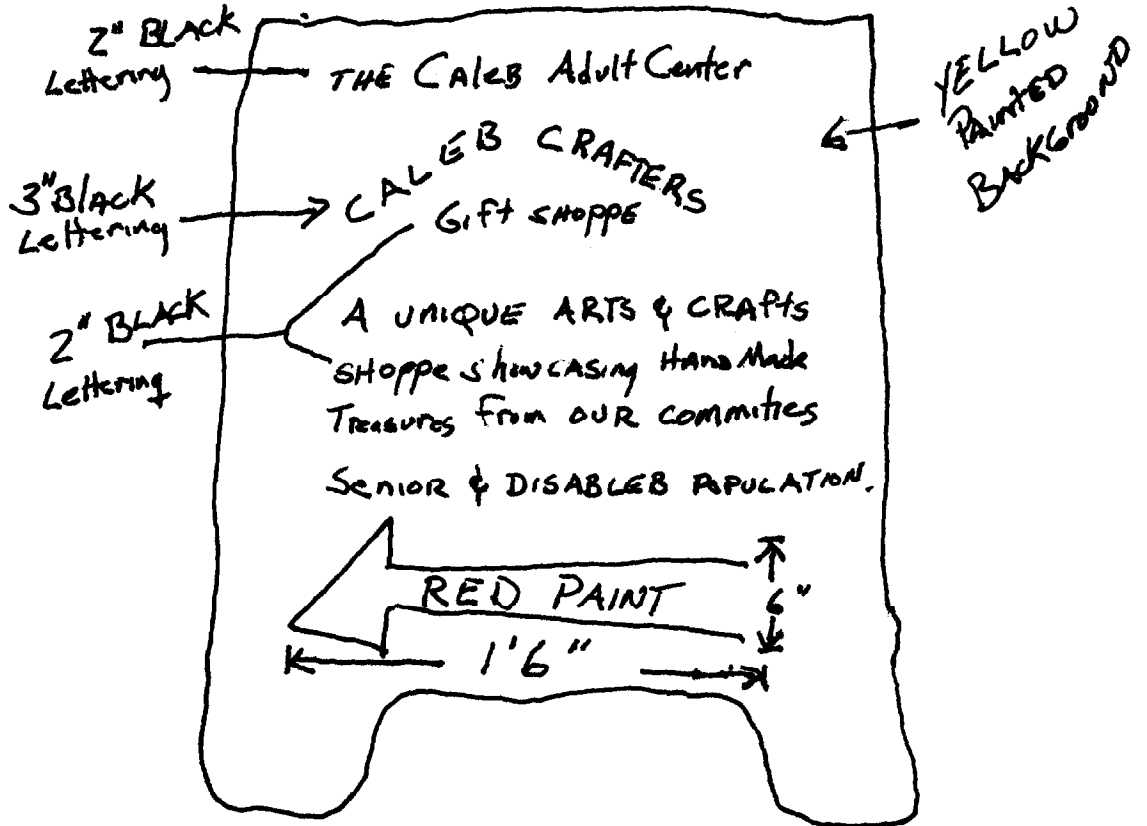 2" BLACK
Lettering
THE CALEB Adult Center
YELLOW
PAINTED
BACKGROUND
3" BLACK
Lettering
CALEB CRAFTERS
Gift SHOPPE
2" BLACK
Lettering
A UNIQUE ARTS & CRAFts
SHOPPE SHOWCASING HANDMade
Treasures from OUR commities
Senior & DISABLEB POPULATION.
RED PAINT
6"
1'6"